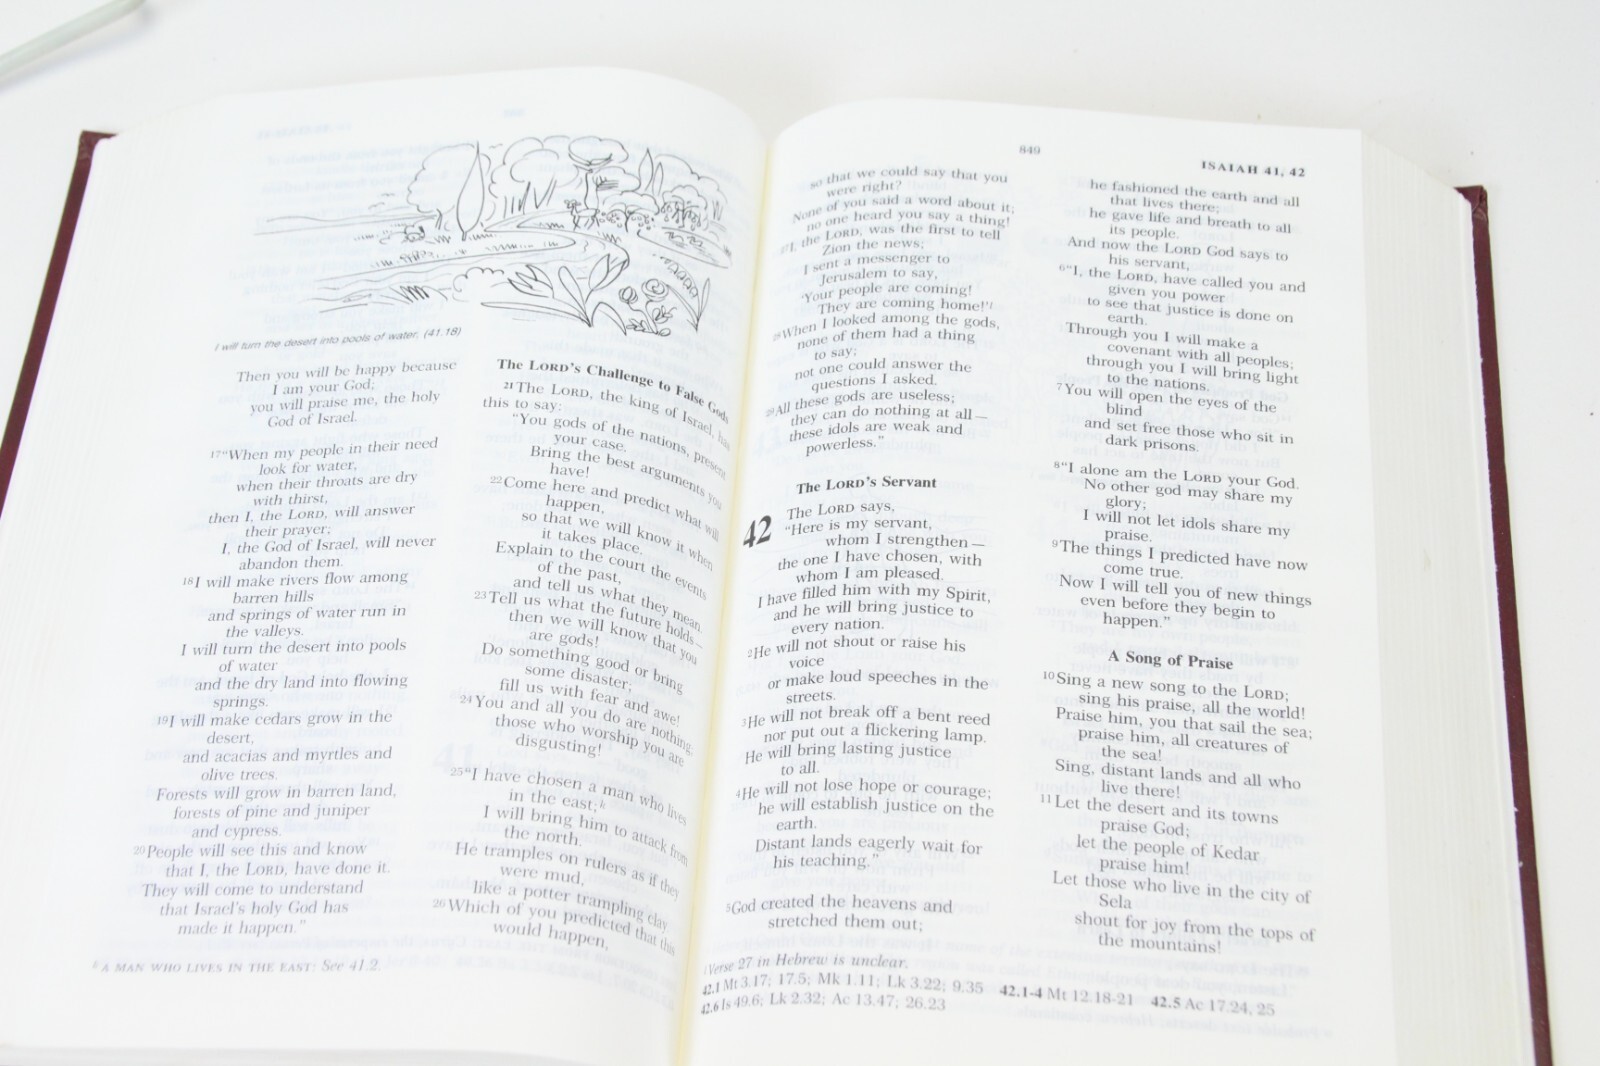 I will turn the desert into pools of water. (41.18)
Then you will be happy because
I am your God;
you will praise me, the holy
God of Israel.
17"When my people in their need
look for water,
when their throats are dry
with thirst,
then I, the LORD, will answer
their prayer;
I, the God of Israel, will never
abandon them.
18I will make rivers flow among
barren hills
and springs of water run in
the valleys.
I will turn the desert into pools
of water
and the dry land into flowing
springs.
19I will make cedars grow in the
desert,
and acacias and myrtles and
olive trees.
Forests will grow in barren land,
forests of pine and juniper
and cypress.
20People will see this and know
that I, the LORD, have done it.
They will come to understand
that Israel's holy God has
made it happen."
The LORD's Challenge to False Gods
21The LORD, the king of Israel, has
this to say:
"You gods of the nations, present
your case.
Bring the best arguments you
have!
22Come here and predict what will
happen,
so that we will know it when
it takes place.
Explain to the court the events
of the past,
and tell us what they mean.
23Tell us what the future holds—
then we will know that you
are gods!
Do something good or bring
some disaster;
fill us with fear and awe!
24You and all you do are nothing;
those who worship you are
disgusting!
25"I have chosen a man who lives
in the east;h
I will bring him to attack from
the north.
He tramples on rulers as if they
were mud,
like a potter trampling clay.
26Which of you predicted that this
would happen,
h A MAN WHO LIVES IN THE EAST: See 41.2.
849
ISAIAH 41, 42
so that we could say that you
were right?
None of you said a word about it;
no one heard you say a thing!
27I, the LORD, was the first to tell
Zion the news;
I sent a messenger to
Jerusalem to say,
'Your people are coming!
They are coming home!'i
28When I looked among the gods,
none of them had a thing
to say;
not one could answer the
questions I asked.
29All these gods are useless;
they can do nothing at all—
these idols are weak and
powerless."
The LORD's Servant
42 The LORD says,
"Here is my servant,
whom I strengthen—
the one I have chosen, with
whom I am pleased.
I have filled him with my Spirit,
and he will bring justice to
every nation.
2He will not shout or raise his
voice
or make loud speeches in the
streets.
3He will not break off a bent reed
nor put out a flickering lamp.
He will bring lasting justice
to all.
4He will not lose hope or courage;
he will establish justice on the
earth.
Distant lands eagerly wait for
his teaching."
5God created the heavens and
stretched them out;
he fashioned the earth and all
that lives there;
he gave life and breath to all
its people.
And now the LORD God says to
his servant,
6"I, the LORD, have called you and
given you power
to see that justice is done on
earth.
Through you I will make a
covenant with all peoples;
through you I will bring light
to the nations.
7You will open the eyes of the
blind
and set free those who sit in
dark prisons.
8"I alone am the LORD your God.
No other god may share my
glory;
I will not let idols share my
praise.
9The things I predicted have now
come true.
Now I will tell you of new things
even before they begin to
happen."
A Song of Praise
10Sing a new song to the LORD;
sing his praise, all the world!
Praise him, you that sail the sea;
praise him, all creatures of
the sea!
Sing, distant lands and all who
live there!
11Let the desert and its towns
praise God;
let the people of Kedar
praise him!
Let those who live in the city of
Sela
shout for joy from the tops of
the mountains!
i Verse 27 in Hebrew is unclear.
42.1 Mt 3.17; 17.5; Mk 1.11; Lk 3.22; 9.35 42.1-4 Mt 12.18-21 42.5 Ac 17.24, 25
42.6 Is 49.6; Lk 2.32; Ac 13.47; 26.23